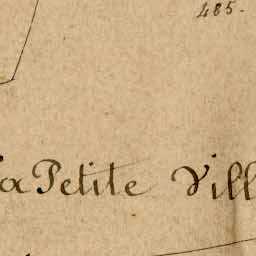 485.
La Petite Vill